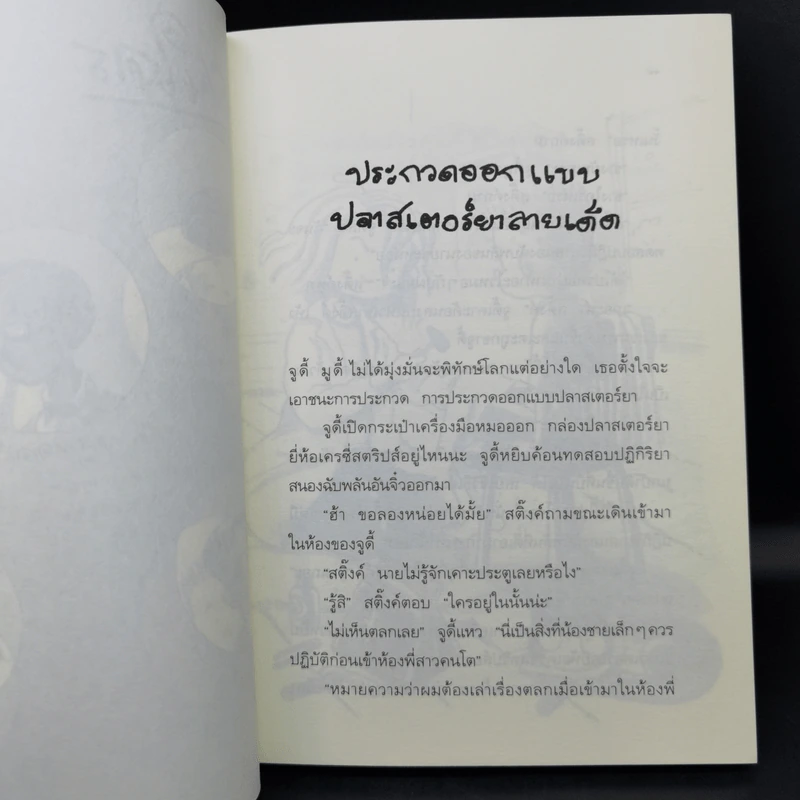 ประกวดออกแบบ
ปลาสเตอร์ยาลายเด็ด
จูดี้ มูดี้ ไม่ได้มุ่งมั่นจะพิทักษ์โลกแต่อย่างใด เธอตั้งใจจะ
เอาชนะการประกวด การประกวดออกแบบปลาสเตอร์ยา
จูดี้เปิดกระเป๋าเครื่องมือหมอออก กล่องปลาสเตอร์ยา
ยี่ห้อเครซี่สตริปส์อยู่ไหนนะ จูดี้หยิบค้อนทดสอบปฏิกิริยา
สนองฉับพลันอันจิ๋วออกมา
“ฮ้า ขอลองหน่อยได้มั้ย” สติ๊งค์ถามขณะเดินเข้ามา
ในห้องของจูดี้
“สติ๊งค์ นายไม่รู้จักเคาะประตูเลยหรือไง”
“รู้สิ” สติ๊งค์ตอบ “ใครอยู่ในนั้นน่ะ”
“ไม่เห็นตลกเลย” จูดี้แหว “นี่เป็นสิ่งที่น้องชายเล็กๆ ควร
ปฏิบัติก่อนเข้าห้องพี่สาวคนโต”
“หมายความว่าผมต้องเล่าเรื่องตลกเมื่อเข้ามาในห้องพี่